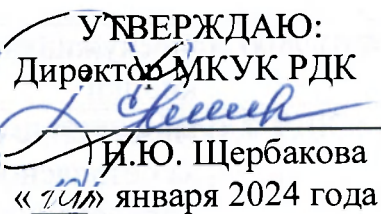 УТВЕРЖДАЮ:
Директор МКУК РДК
Н.Ю. Щербакова
« » января 2024 года